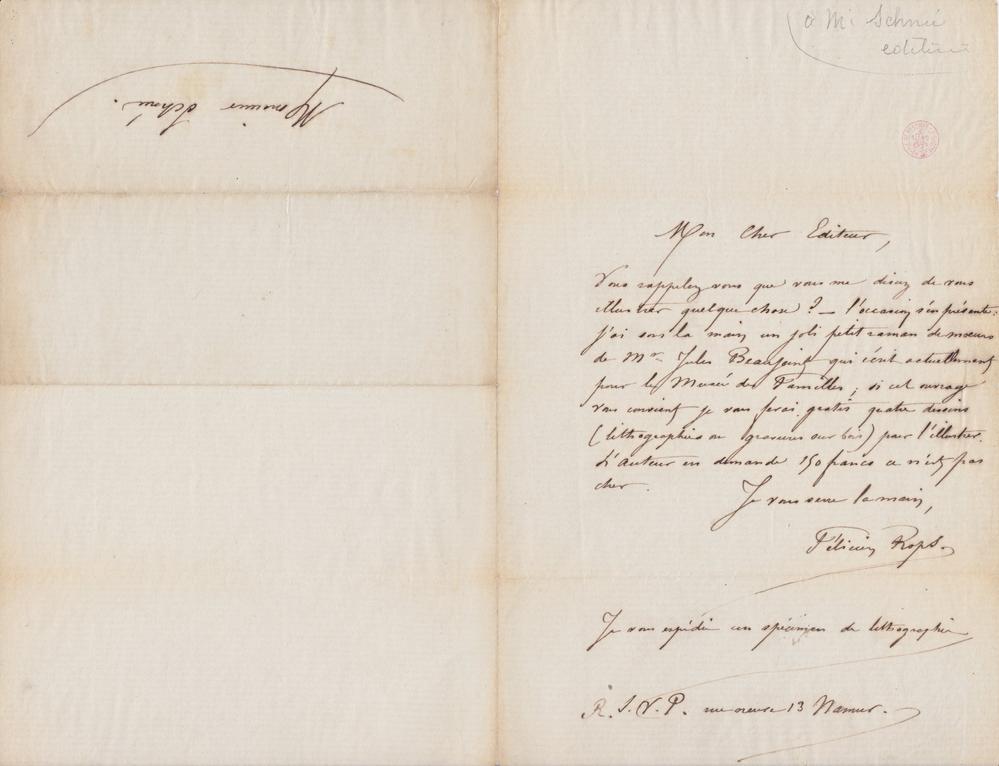 Monsieur Schnée.
à Mr Schnée
editeur
Mon Cher Editeur,
Vous rappelez vous que vous me disiez de vous
illustrer quelque chose ? — l'occasion s'en présente :
j'ai sous la main un joli petit roman de mœurs
de Mr Jules Beaujoint qui écrit actuellement
pour le Musée des Familles ; si cet ouvrage
vous convient je vous ferai gratis quatre dessins
(lithographies ou gravures sur bois) pour l'illustrer.
L'auteur en demande 150 francs ce n'est pas
cher.
Je vous serre la main,
Félicien Rops.
Je vous expédie un spécimen de lithographie
R. S. V. P. rue neuve 13 Namur.